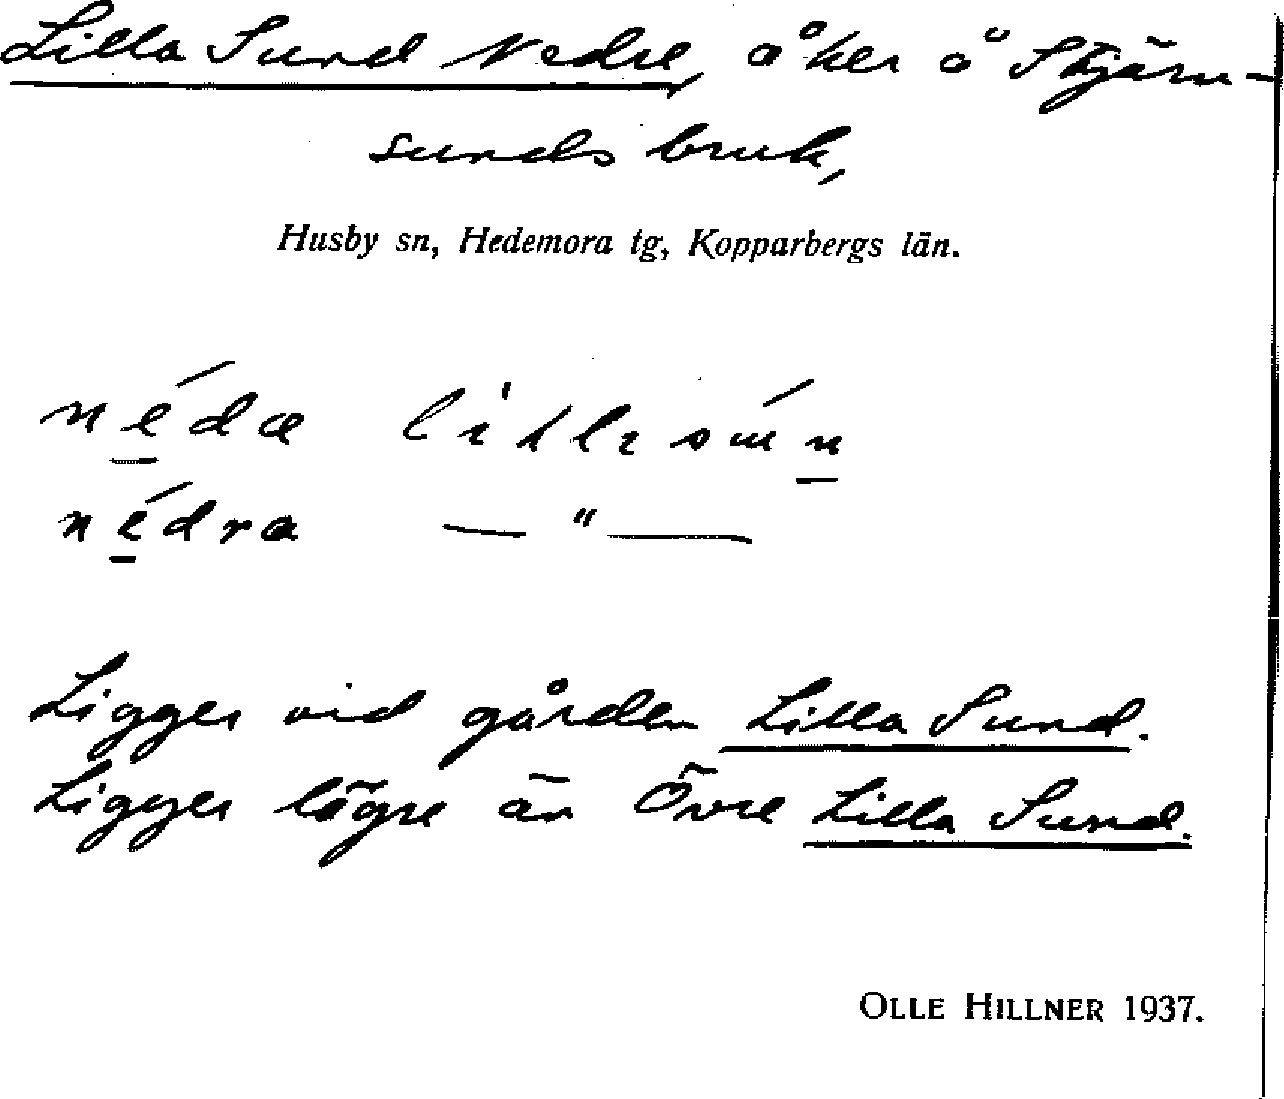 Lilla Sund Nedre, åker å Stjärn-
sunds bruk,
Husby sn, Hedemora tg, Kopparbergs län.
néda
nédra — " —
Ligger vid gården Lilla Sund.
Ligger lägre än Övre Lilla Sund.
OLLE HILLNER 1937.